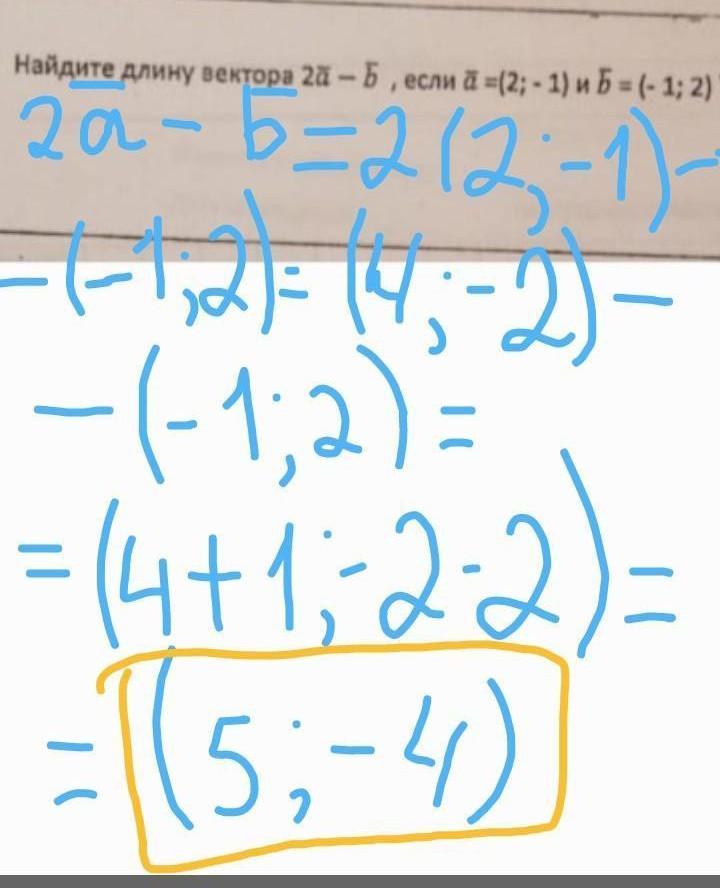 Найдите длину вектора 2a̅ − b̅ , если a̅ =(2; - 1) и b̅ = (- 1; 2)
2a̅ − b̅ = 2(2;−1)−
−(−1;2)=(4;−2)−
−(-1;2)=
=(4+1;-2-2)=
=(5;−4)